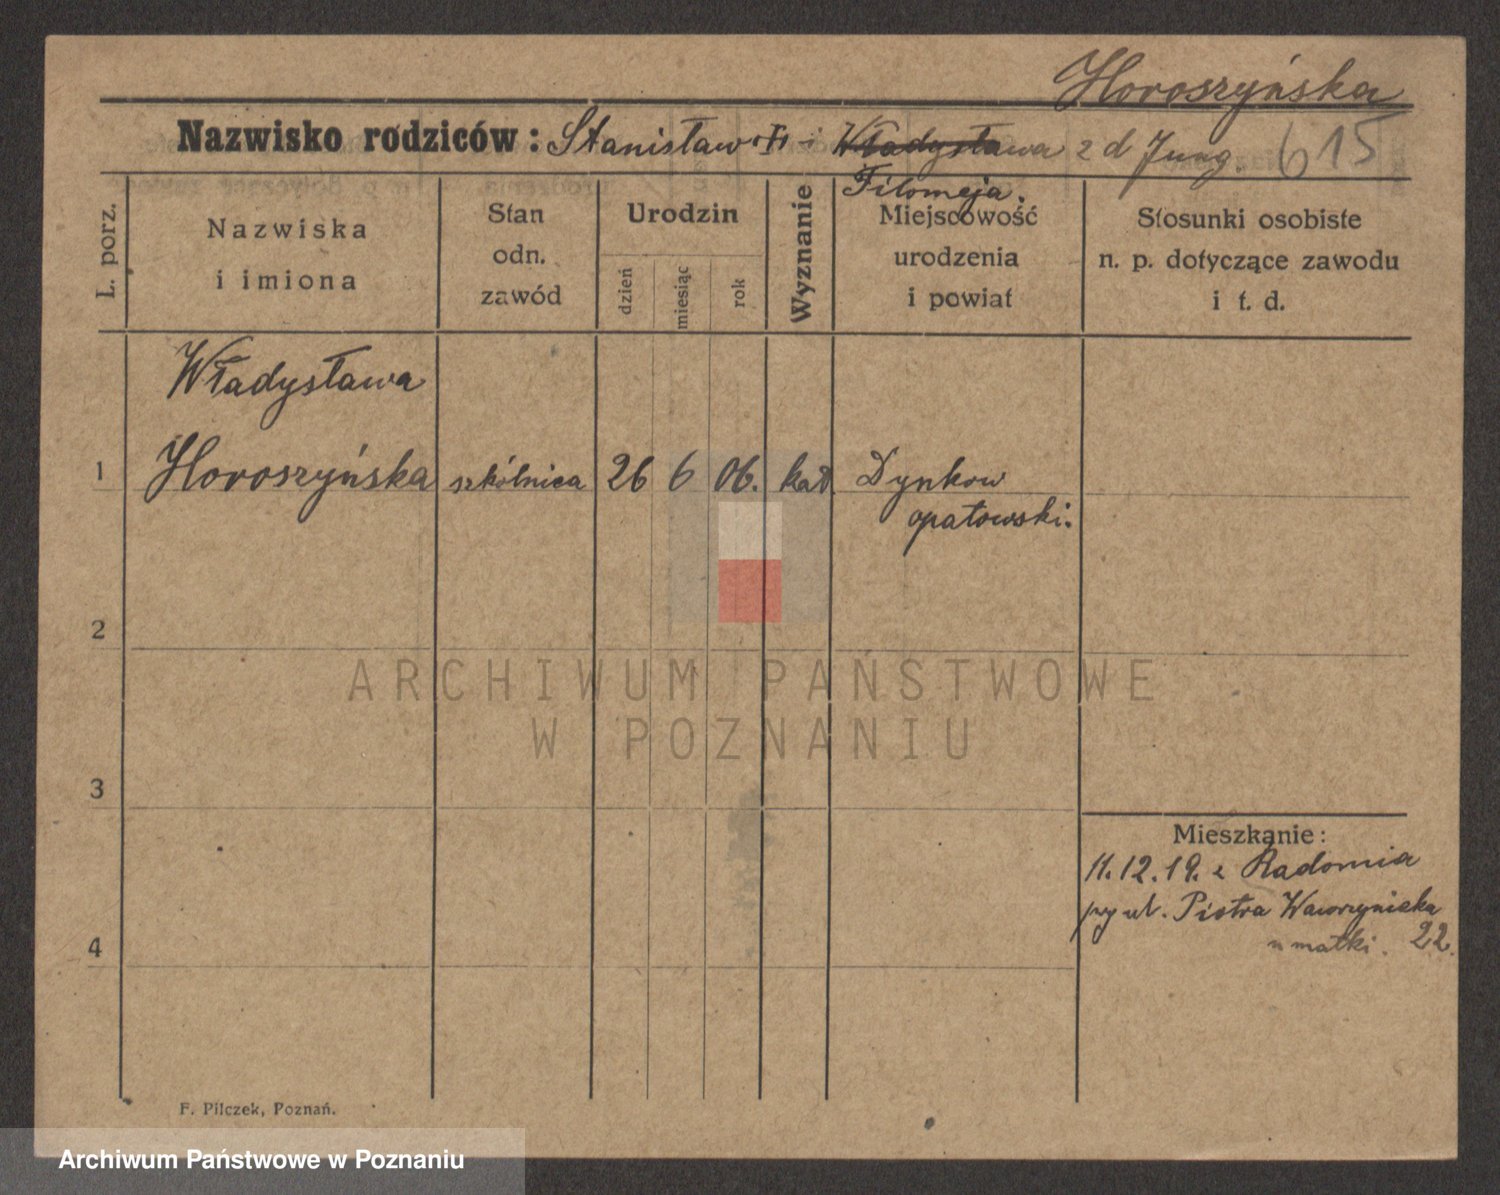 Horoszyńska
Nazwisko rodziców: Stanisław i Władysława z d Jung. 615
Filomeja.
L. porz.
Nazwiska
i imiona
Stan
odn.
zawód
Urodzin
dzień
miesiąc
rok
Wyznanie
Miejscowość
urodzenia
i powiat
Stosunki osobiste
n. p. dotyczące zawodu
i t. d.
Władysława
1 Horoszyńska szkólnica 26 6 06. kat Dynkow
opatowski.
2
ARCHIWUM PAŃSTWOWE
W POZNANIU
3
Mieszkanie:
11.12.19. z Radomia
przy ul. Piotra Wawrzyniaka
u matki. 22.
4
F. Pilczek, Poznań.
Archiwum Państwowe w Poznaniu